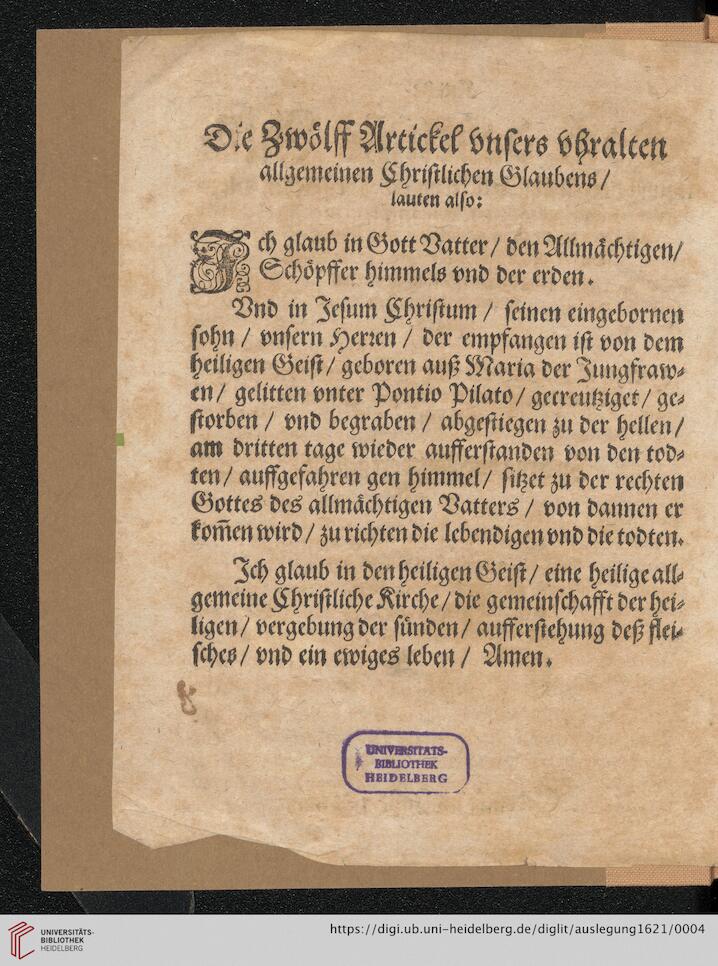 Die Zwölff Artickel vnsers vhralten
allgemeinen Christlichen Glaubens /
lauten also:
Ich glaub in Gott Vatter / den Allmächtigen /
Schöpffer himmels vnd der erden.
Vnd in Jesum Christum / seinen eingebornen
sohn / vnsern Herren / der empfangen ist von dem
heiligen Geist / geboren auß Maria der Jungfraw⸗
en / gelitten vnter Pontio Pilato / gecreutziget / ge⸗
storben / vnd begraben / abgestiegen zu der hellen /
am dritten tage wieder aufferstanden von den tod⸗
ten / auffgefahren gen himmel / sitzet zu der rechten
Gottes des allmächtigen Vatters / von dannen er
kom̃en wird / zu richten die lebendigen vnd die todten.
Ich glaub in den heiligen Geist / eine heilige all⸗
gemeine Christliche Kirche / die gemeinschafft der hei⸗
ligen / vergebung der sünden / aufferstehung deß flei⸗
sches / vnd ein ewiges leben / Amen.
UNIVERSITÄTS-
BIBLIOTHEK
HEIDELBERG
https://digi.ub.uni-heidelberg.de/diglit/auslegung1621/0004
UNIVERSITÄTS-
BIBLIOTHEK
HEIDELBERG